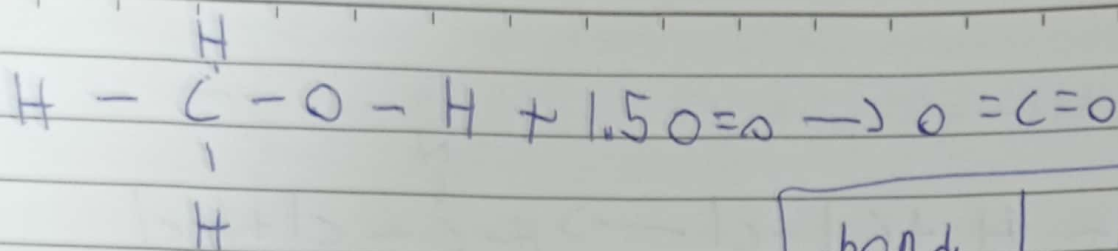 H
H - C - O - H + 1.5 O=O → O = C = O
H
bond